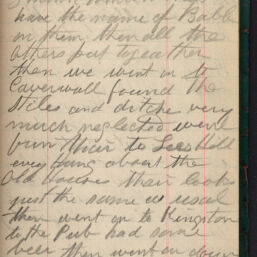 have the name of Babb
on them, then all the
others put together
then we went on to
Caverwall found the
Stiles and ditche very
much neglected went
from their to Lees Hill
every thing about the
Old houses their looks
just the same as usual
then went on to Kingston
to the Pub had some
beer then went on down